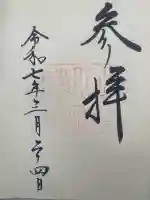 参拝
令和七年三月二四日